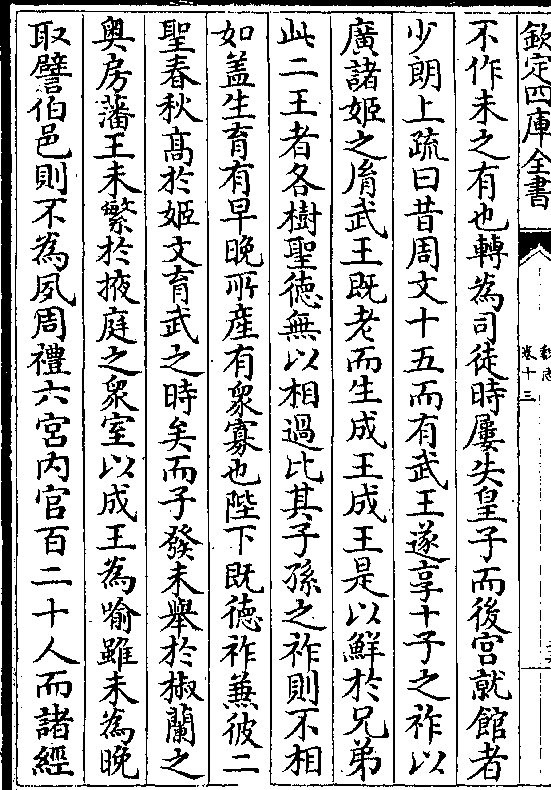 欽定四庫全書
魏志
卷十三
不作未之有也轉為司徒時屢失皇子而後宫就館者
少朗上疏曰昔周文十五而有武王遂享十子之祚以
廣諸姬之𦙍武王既老而生成王成王是以鮮於兄弟
此二王者各樹聖德無以相過比其子孫之祚則不相
如盖生育有早晚所產有衆寡也陛下既德祚兼彼二
聖春秋髙於姬文育武之時矣而子發未舉於椒蘭之
奥房藩王未繁於掖庭之衆室以成王為喻雖未為晚
取譬伯邑則不為夙周禮六宫内官百二十人而諸經